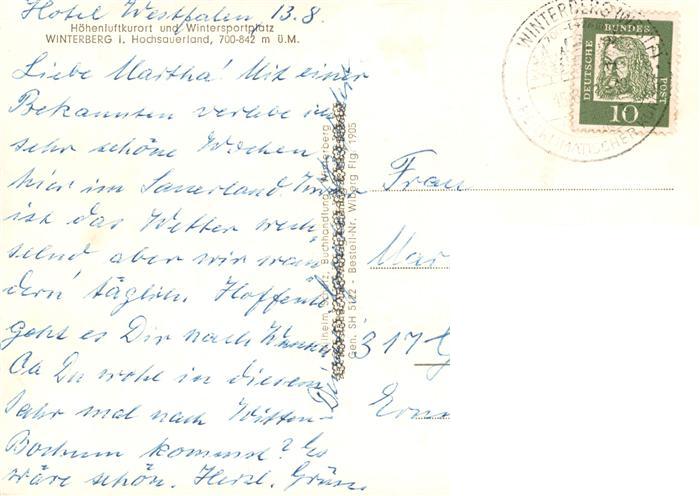 Hotel Westfalen 13.8.
Höhenluftkurort und Wintersportplatz
WINTERBERG i. Hochsauerland, 700-842 m ü.M.
Liebe Martha! Mit einer
Bekannten verlebe ich
sehr schöne Wochen
hier im Sauerland.
ist das Wetter wech
selnd aber wir wan
dern täglich. Hoffentl.
geht es Dir nach Wunsch
Ob Du wohl in diesem
Jahr mal nach Witten-
Bochum kommst? Es
wäre schön. Herzl. Grüsse
Buchhandlung, Winterberg
Gen. SH 5122 - Bestell-Nr. Wiberg Flg. 1905
WINTERBERG
DEUTSCHE BUNDES POST
10
Frau
Mar
317